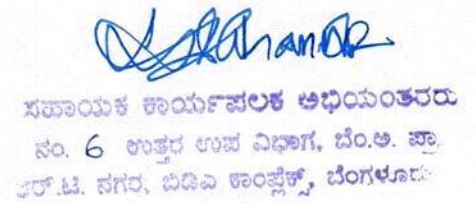 ಸಹಾಯಕ ಕಾರ್ಯಪಾಲಕ ಅಭಿಯಂತರರು
ನಂ. 6 ಉತ್ತರ ಉಪ ವಿಭಾಗ, ಬೆಂ.ಅ. ಪ್ರಾ
ಆರ್.ಟಿ. ನಗರ, ಬಿಡಿಎ ಕಾಂಪ್ಲೆಕ್ಸ್, ಬೆಂಗಳೂರು